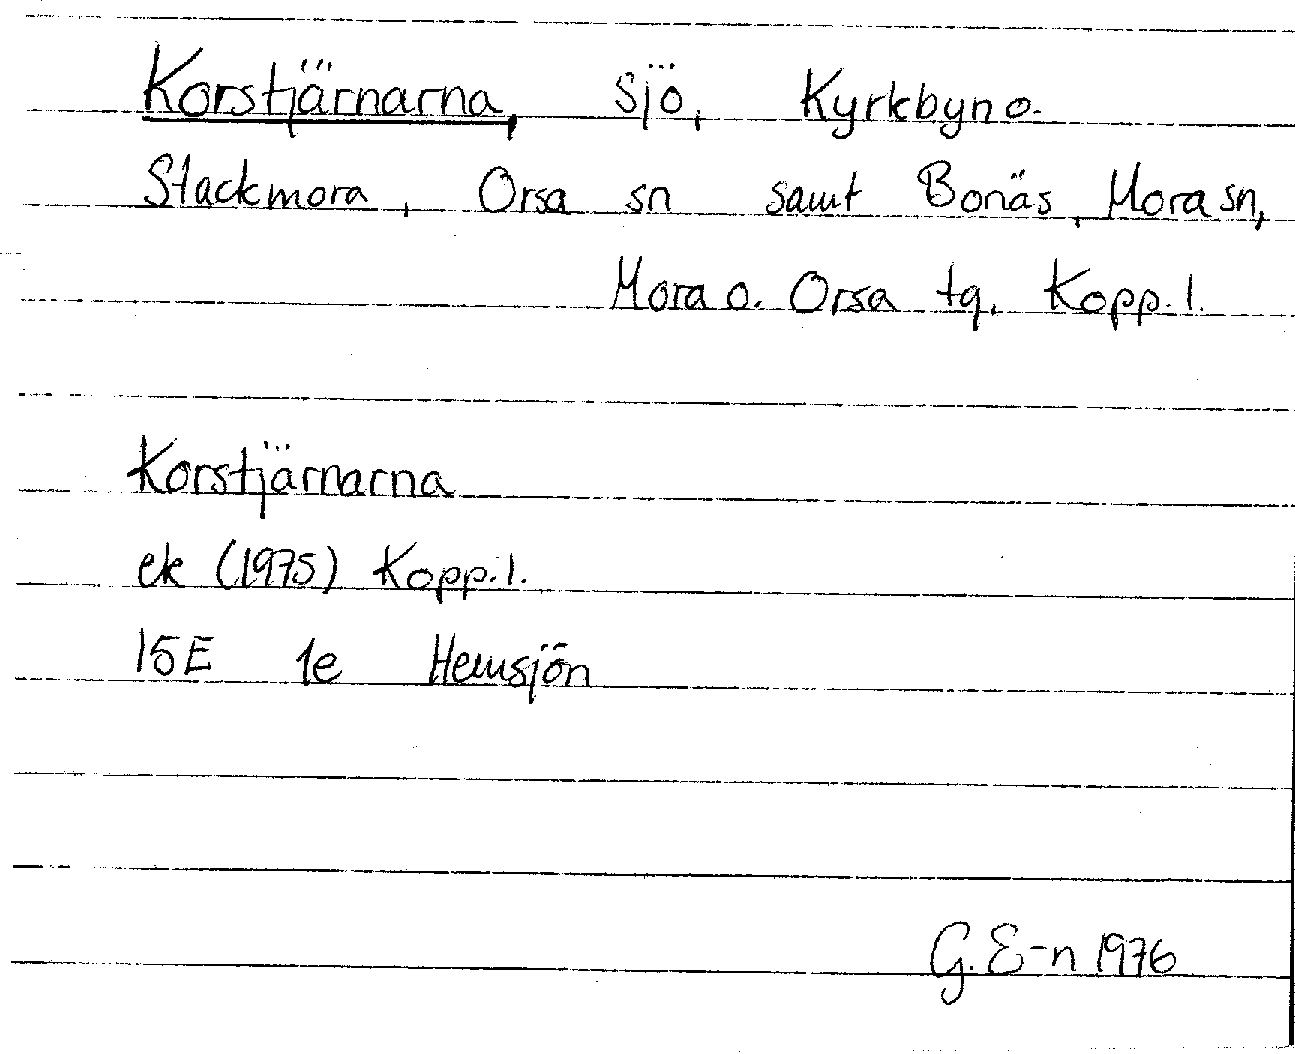 Korstjärnarna, sjö, Kyrkbyn o.
Stackmora, Orsa sn samt Bonäs, Mora sn,
Mora o. Orsa tg. Kopp. l.
Korstjärnarna
ek (1975) Kopp. l.
15E 1e Hemsjön
G. E-n 1976